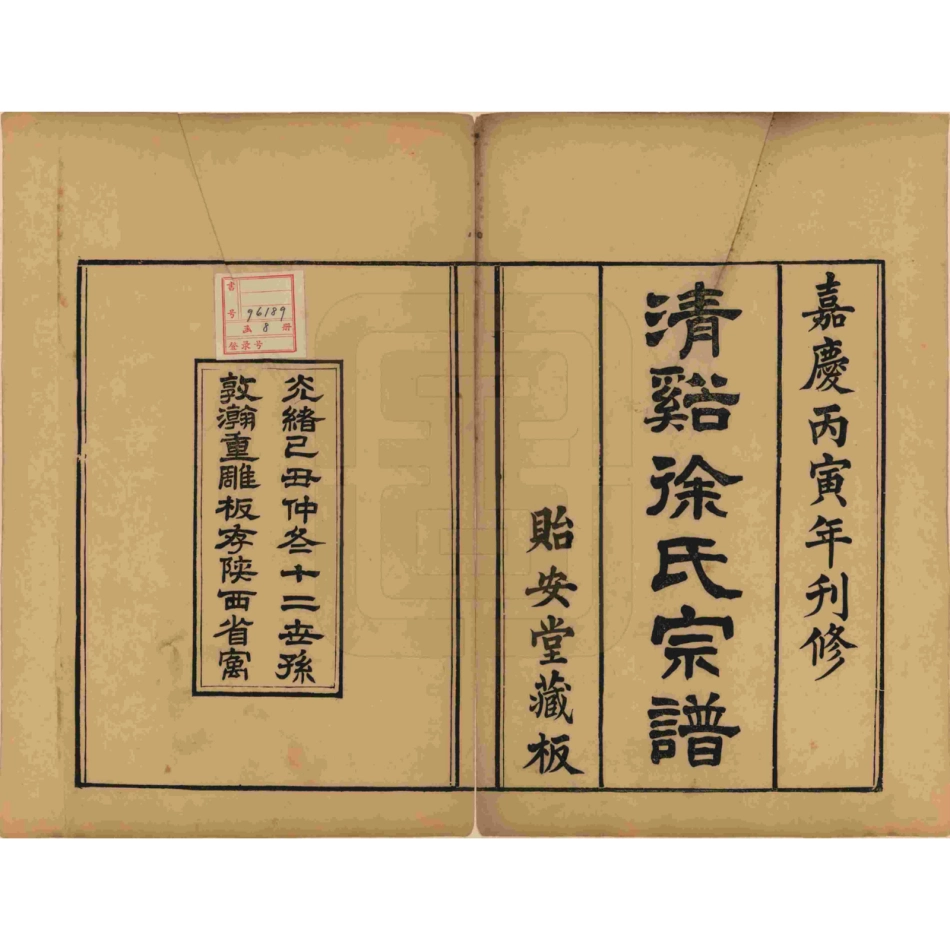 嘉慶丙寅年刊修
清谿徐氏宗譜
貽安堂藏板
光緒己丑仲冬十二世孫
敦瀚重雕板存陝西省寓
書
号 96189
函 8 冊
登录号